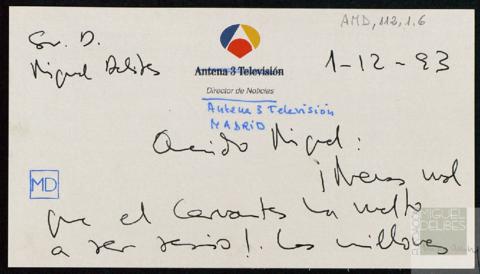 AMD, 112, 1, 6
Sr. D.
Miguel Delibes
1-12-93
Antena 3 Televisión
Director de Noticias
Antena 3 Televisión
MADRID
Querido Miguel:
¡Menos mal
MD
que el Cervantes ha vuelto
a ser serio!. Los millones
MIGUEL
DELIBES